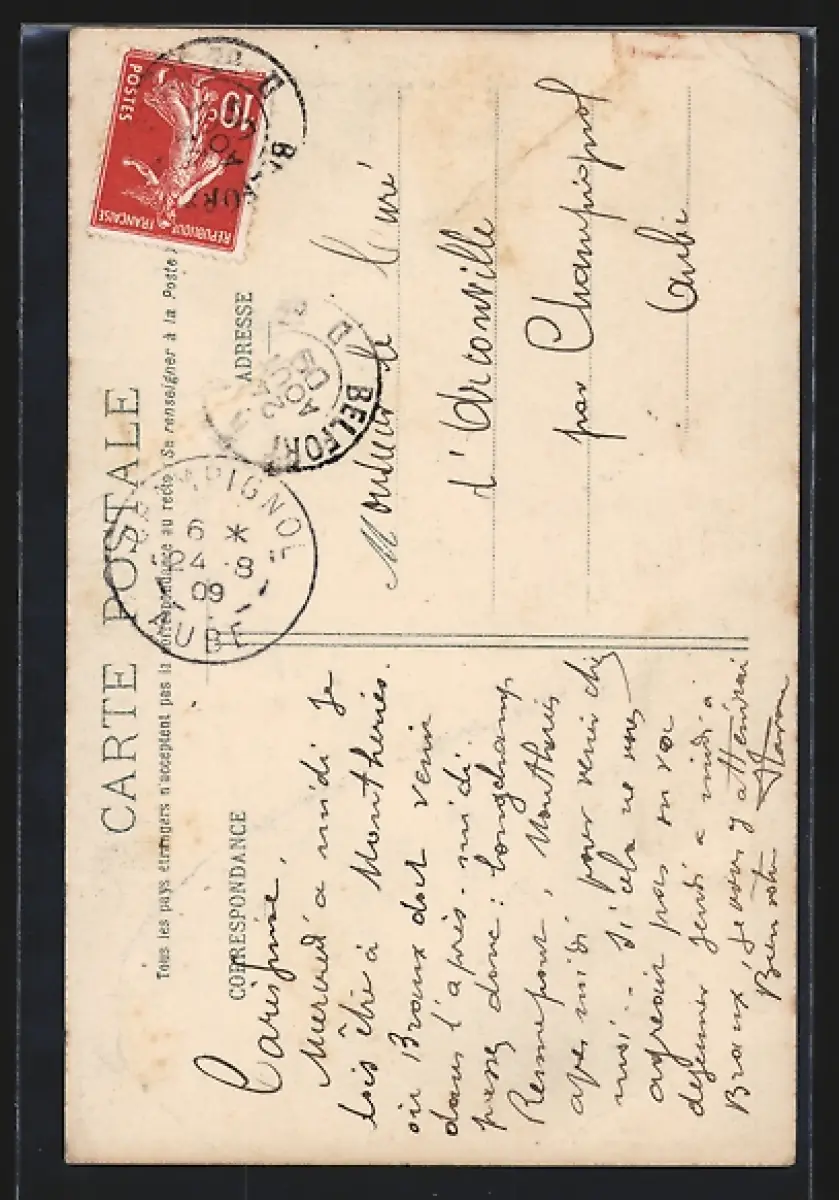 CARTE POSTALE
Tous les pays étrangers n'acceptent pas la correspondance au recto (Se renseigner à la Poste)
CORRESPONDANCE
ADRESSE
10c
POSTES
REPUBLIQUE FRANCAISE
BELFORT
BELFORT
CHAMPIGNOL
6 *
24 8
09
AUBE
Carissime,
Mercredi à midi je
dois être à Montheries.
où Braux doit venir
dans l'après-midi.
passez donc : Longchamp,
Rennepont, Montheries
après midi pour venir chez
moi... Si cela ne vous
agréait pas on va
déjeuner jeudi à midi à
Braux, je vous y attendrai
Bien votre
Monsieur le Curé
d'Arconville
par Champignol
Aube